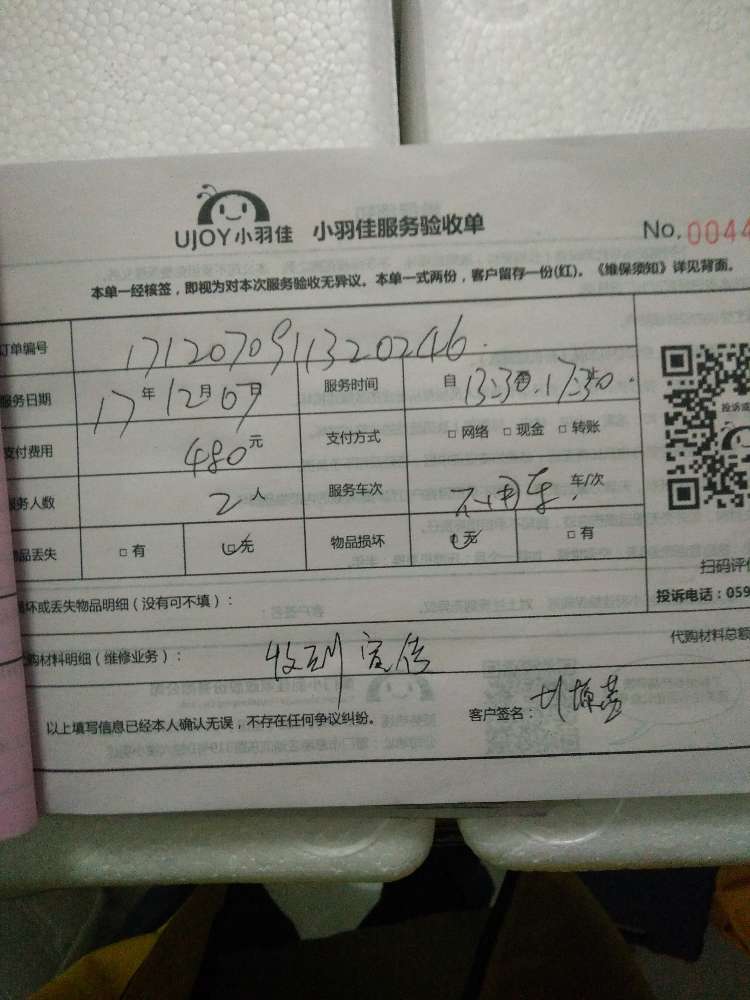 UJOY小羽佳 小羽佳服务验收单 No. 0044
本单一经核签，即视为对本次服务验收无异议。本单一式两份，客户留存一份(红)。《维保须知》详见背面。
订单编号 171207091320246
服务日期 17年12月07日 服务时间 自13:30 17:30
支付费用 480元 支付方式 □网络 □现金 □转账
服务人数 2人 服务车次 不用车 车/次
物品丢失 □有 □无 物品损坏 □无 □有
扫码评价
损坏或丢失物品明细（没有可不填）： 投诉电话：059
代购材料明细（维修业务）： 收到宣传 代购材料总额
以上填写信息已经本人确认无误，不存在任何争议纠纷。 客户签名：